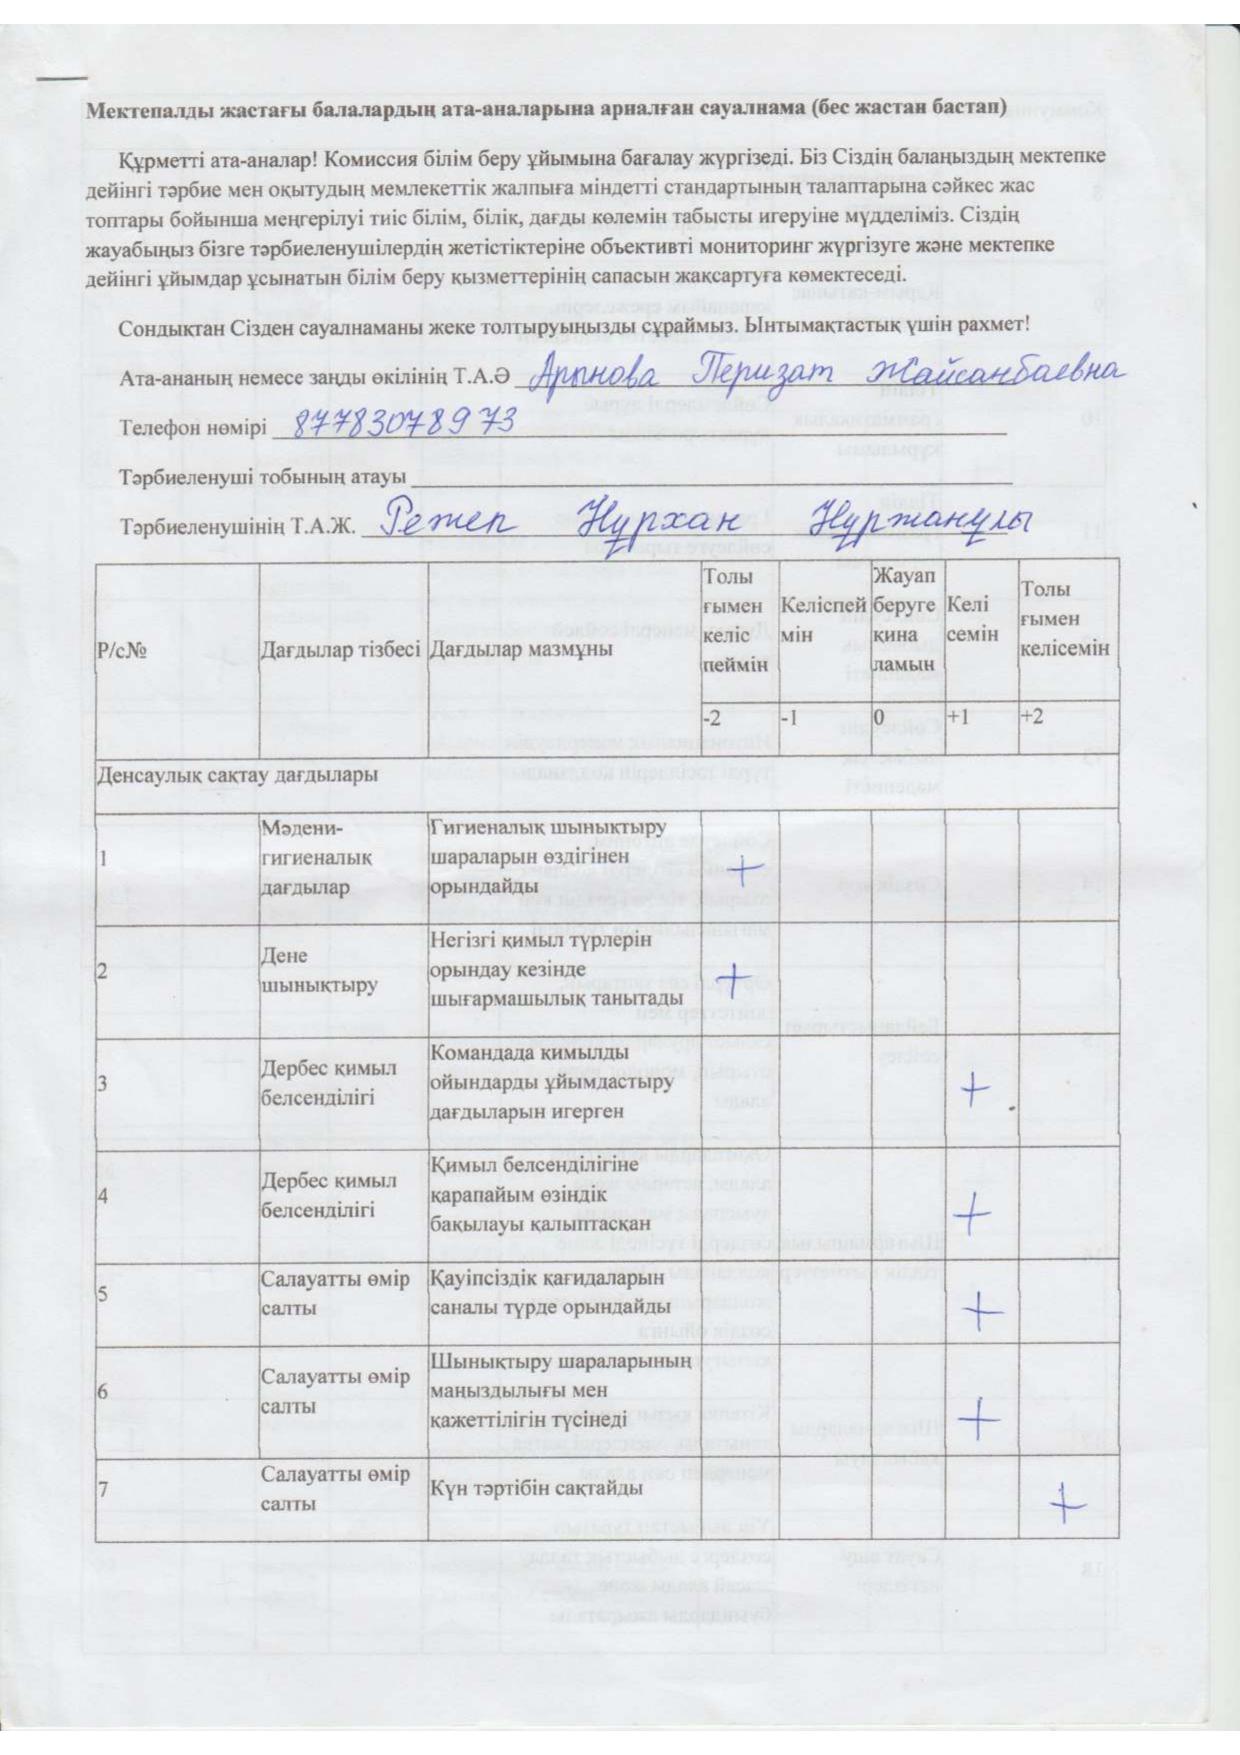 Мектепалды жастағы балалардың ата-аналарына арналған сауалнама (бес жастан бастап)
Құрметті ата-аналар! Комиссия білім беру ұйымына бағалау жүргізеді. Біз Сіздің балаңыздың мектепке
дейінгі тәрбие мен оқытудың мемлекеттік жалпыға міндетті стандартының талаптарына сәйкес жас
топтары бойынша меңгерілуі тиіс білім, білік, дағды көлемін табысты игеруіне мүдделіміз. Сіздің
жауабыңыз бізге тәрбиеленушілердің жетістіктеріне объективті мониторинг жүргізуге және мектепке
дейінгі ұйымдар ұсынатын білім беру қызметтерінің сапасын жақсартуға көмектеседі.
Сондықтан Сізден сауалнаманы жеке толтыруыңызды сұраймыз. Ынтымақтастық үшін рахмет!
Ата-ананың немесе заңды өкілінің Т.А.Ә Арынова Перизат Жайсанбаевна
Телефон нөмірі 87783078973
Тәрбиеленуші тобының атауы
Тәрбиеленушінің Т.А.Ж. Режеп Нұрхан Нұржанұлы
Р/с№ Дағдылар тізбесі Дағдылар мазмұны
Толы
ғымен
келіс
пеймін
Келіспей
мін
Жауап
беруге
қина
ламын
Келі
семін
Толы
ғымен
келісемін
-2 -1 0 +1 +2
Денсаулық сақтау дағдылары
1
Мәдени-
гигиеналық
дағдылар
Гигиеналық шынықтыру
шараларын өздігінен
орындайды
+
2
Дене
шынықтыру
Негізгі қимыл түрлерін
орындау кезінде
шығармашылық танытады
+
3
Дербес қимыл
белсенділігі
Командада қимылды
ойындарды ұйымдастыру
дағдыларын игерген
+
4
Дербес қимыл
белсенділігі
Қимыл белсенділігіне
қарапайым өзіндік
бақылауы қалыптасқан
+
5
Салауатты өмір
салты
Қауіпсіздік қағидаларын
саналы түрде орындайды
+
6
Салауатты өмір
салты
Шынықтыру шараларының
маңыздылығы мен
қажеттілігін түсінеді
+
7
Салауатты өмір
салты
Күн тәртібін сақтайды
+